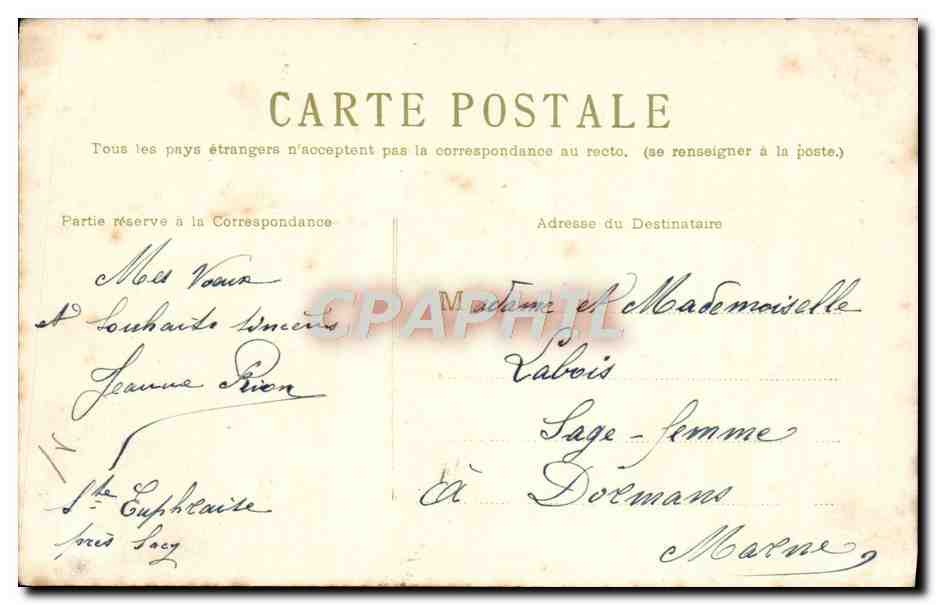 CARTE POSTALE
Tous les pays étrangers n'acceptent pas la correspondance au recto. (se renseigner à la poste.)
Partie réserve à la Correspondance
Mes Voeux
et Souhaits sincères
Jeanne Prion
Ste Euphraise
près Sacy
Adresse du Destinataire
Madame et Mademoiselle
Labois
Sage-femme
à Dormans
Marne
CPAPHIL